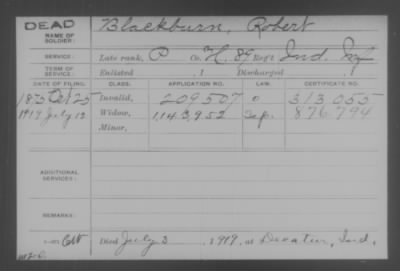 DEAD
NAME OF SOLDIER: Blackburn, Robert
SERVICE: Late rank, P Co. H, 89 Reg't Ind. Inf
TERM OF SERVICE: Enlisted , 1 Discharged , 1
DATE OF FILING. CLASS. APPLICATION NO. LAW. CERTIFICATE NO.
Oct 25 Invalid, 209507 0 313055
1919 July 12 Widow, 1,143,952 876.794
Minor,
ADDITIONAL SERVICES:
REMARKS:
Died July 3, 1919, at Decatur, Ind.